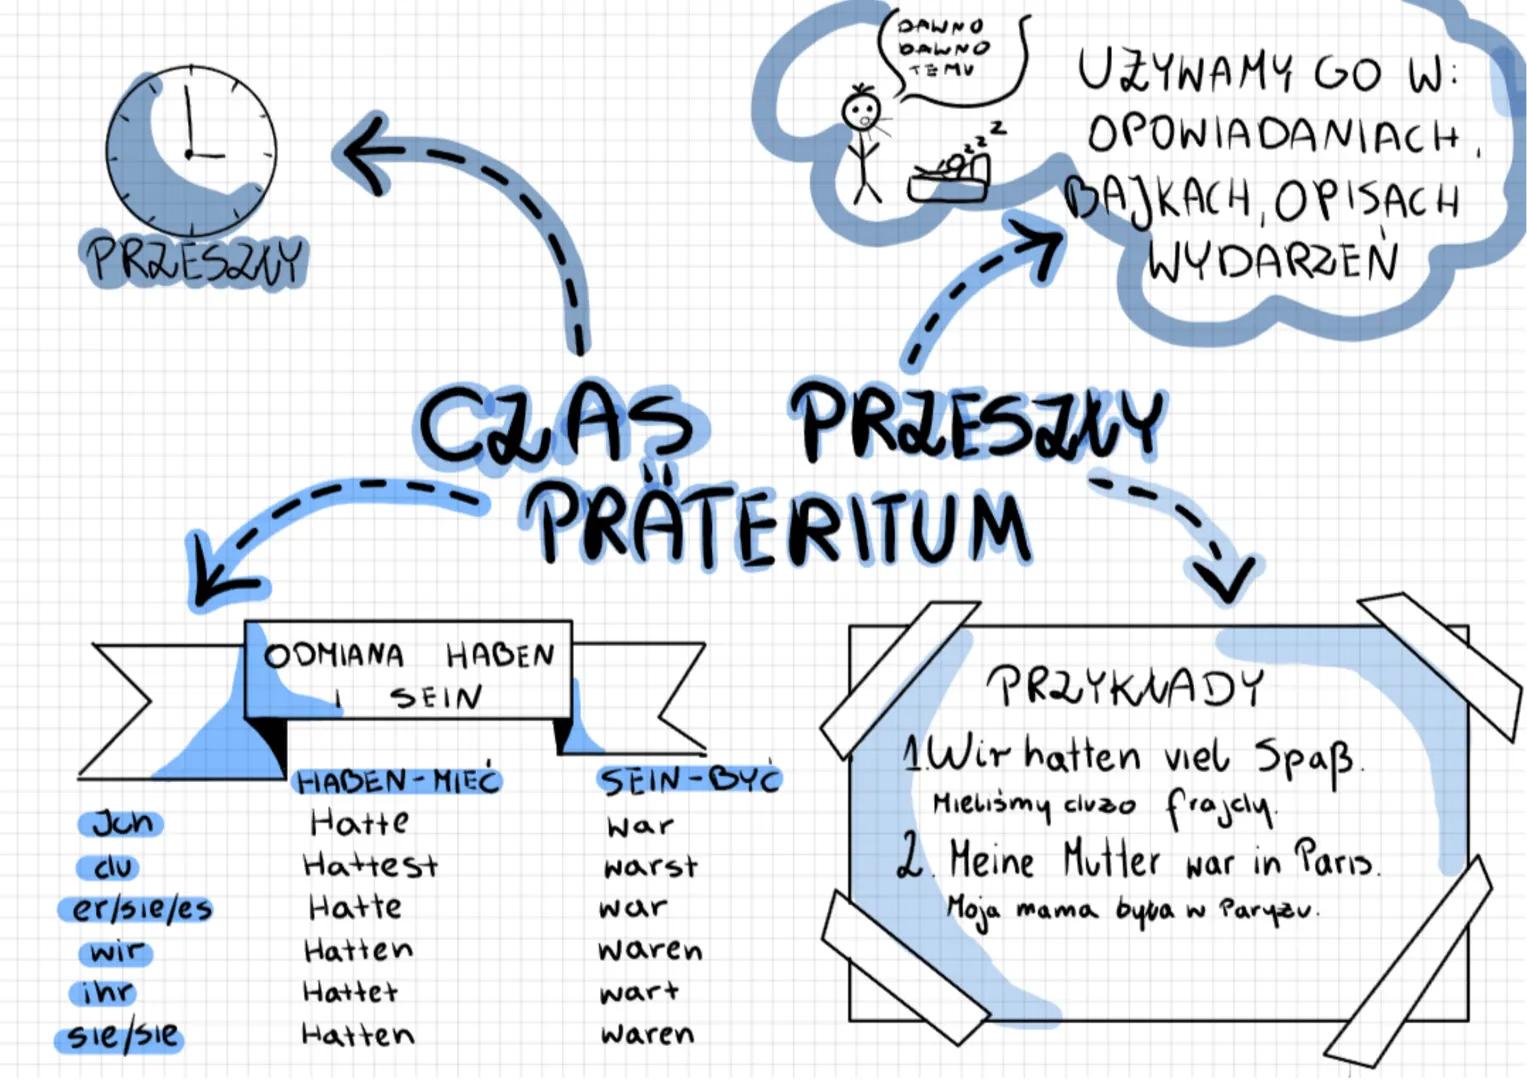 DAWNO
DAWNO
TEMU
UŻYWAMY GO W:
OPOWIADANIACH,
BAJKACH, OPISACH
WYDARZEŃ
PRZESZŁY
CZAS PRZESZŁY
PRÄTERITUM
ODMIANA HABEN
I SEIN
HABEN-MIEĆ SEIN-BYĆ
Ich Hatte war
du Hattest warst
er/sie/es Hatte war
wir Hatten waren
ihr Hattet wart
sie/sie Hatten waren
PRZYKŁADY
1.Wir hatten viel Spaß.
Mieliśmy dużo frajdy.
2. Meine Mutter war in Paris.
Moja mama była w Paryżu.
z z z